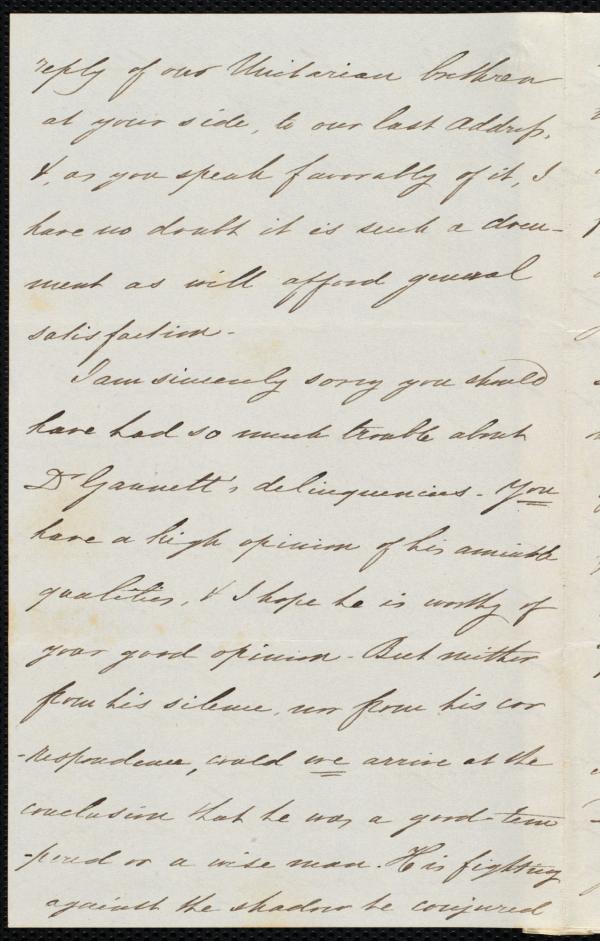 reply of our Unitarian brethren
at your side, to our last Address,
&, as you speak favorably of it, I
have no doubt it is such a docu-
ment as will afford general
satisfaction -
I am sincerely sorry you should
have had so much trouble about
Dr Gannett's delinquencies - You
have a high opinion of his amiable
qualities, & I hope he is worthy of
your good opinion - But neither
from his silence, nor from his cor
-respondence, could we arrive at the
conclusion that he was a good-tem
-pered or a wise man. His fighting
against the shadow he conjured